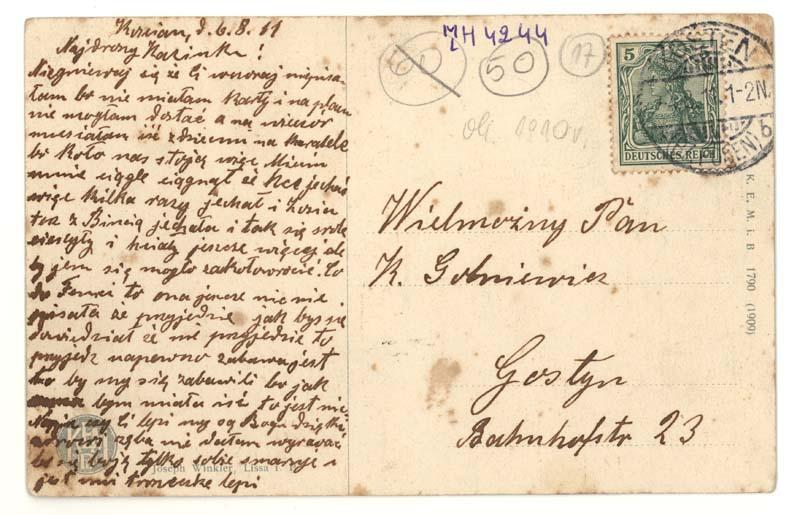 Kościan, d. 6.8.11
Najdroższy Kazinku!
Niegniewaj się że Ci wczoraj niepisa-
łam bo nie miałam karty i na placu
nie mogłam dostać a na wieczór
musiałam iść z dziećmi na karatele
bo koło nas stoją więc
mnie ciągle ciągnął że chce jechać
więc kilka razy jechał i Kozia
też z Binią jechała i tak się
cieszyły i jeszcze więcej ale
by jem się mogło zakołowrocić. Co
do to ona jeszcze nic nie
pisała że przyjedzie jak byś się
dowiedział że nie przyjedzie to
przyjedz napewno zabawa jest
to by my się zabawili bo jak
bym miała iść to jest nic
czy Ci lepi my są Bogu dzięki
zdrowi zęba nie dałam wyrwać
bo się boję tylko sobie smaruje i
jest mi troszeczkę lepi
MŁH 4244
60
50
17
ok. 1910 r.
5
DEUTSCHES REICH
KOSTEN
1-2N.
(BZ. POSEN)
b
Wielmożny Pan
K. Golniewicz
Gostyn
Bahnhofstr 23
K. E. M. i. B 1790 (1909)
Joseph Winkler, Lissa i. P.